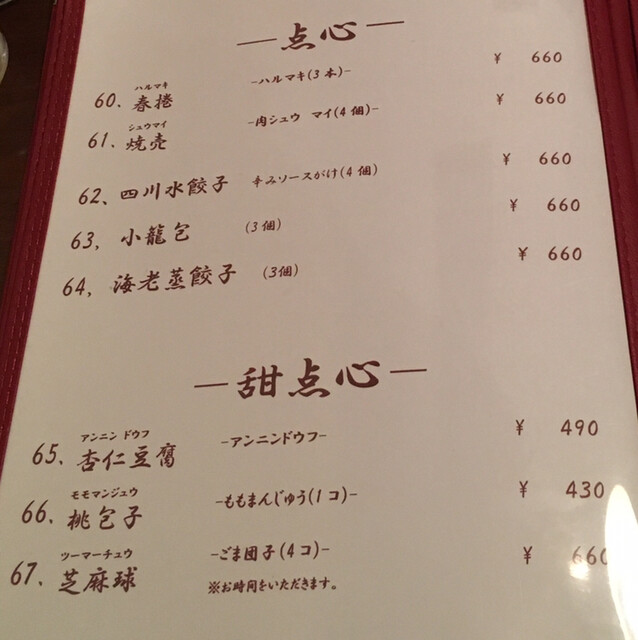 —点心—
ハルマキ
60. 春捲 -ハルマキ(3本)- ¥ 660
シュウマイ
61. 焼売 -肉シュウ マイ(4個)- ¥ 660
62、四川水餃子 辛みソースがけ(4個) ¥ 660
63, 小龍包 (3個) ¥ 660
64, 海老蒸餃子 (3個) ¥ 660
—甜点心—
アンニン ドウフ
65、杏仁豆腐 -アンニンドウフ- ¥ 490
モモマンジュウ
66、桃包子 -ももまんじゅう(1コ)- ¥ 430
ツーマーチュウ
67、芝麻球 -ごま団子(4コ)- ¥ 660
※お時間をいただきます。